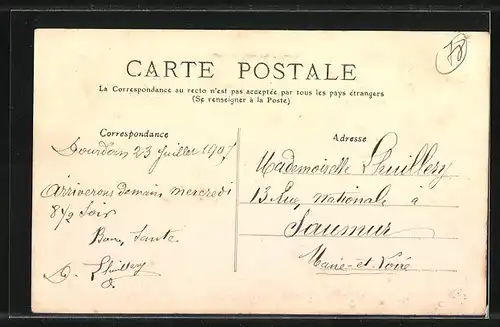 78
CARTE POSTALE
La Correspondance au recto n'est pas acceptée par tous les pays étrangers
(Se renseigner à la Poste)
Correspondance
Dourdan 23 Juillet 1907
Arriverons Demain mercredi
8 1/2 Soir
Bonne Santé
Lhuillery
Adresse
Mademoiselle Lhuillery
13 Rue Nationale a
Saumur
Maine-et-Loire